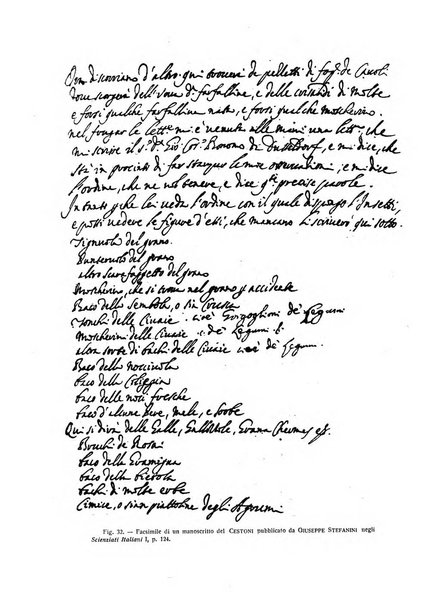 Ora discorriamo d'altro, qui troverà de pelletti di fog: de Cavoli
dove scorgerà dell'ova di farfalline, e delle crisalidi di molte
e forsi qualche farfallina nata, e forsi qualche moscherino.
nel frugar le lett.e mi è venuta alle mani una lett.a, che
mi scrive il s.r D. Gio: Bonomo da , e mi dice, che
stà in procinto di far stampar le mie osservationi; e mi dice
l'ordine, che ne vol tenere, e dice q.te precise parole.
Intanto p che lei veda l'ordine con il quale dispongo l'Insetti,
e possi vedere le figure d'essi, che mancano li scriverò qui sotto.
Tignuola del grano
Punteruolo del grano
altro scarafaggetto del grano
Moscherino, che si trova nel grano p accidente
Baco della semola, o sia Crusca
Tonchi delle Civaie cioè Gorgoglioni de Legumi
Moscherini delle Civaie . i. de Legumi
altra sorte di bachi delle Civaie cioè de Legumi
Baco della nocciuola
baco della
baco delle noci fresche
baco d'alcune pere, mele, e sorbe
Qui si dirà delle Galle, Gallozzole, Grana Chermes ec.
Bruchi de Rosai
baco della
baco della Bietola
bachi di molte erbe
Cimice, o sia piattolina degli Agrumi
Fig. 32. — Facsimile di un manoscritto del CESTONI pubblicato da GIUSEPPE STEFANINI negli
Scienziati Italiani I, p. 124.